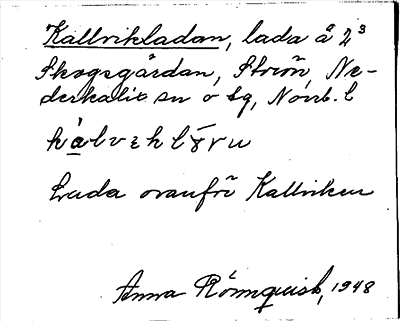 Kallvikladan, lada å 2³
Skogsgärdan, Storön, Ne-
derkalix sn o tg, Norrb. l
Lada ovanför Kallviken
Anna Rönnquist, 1948